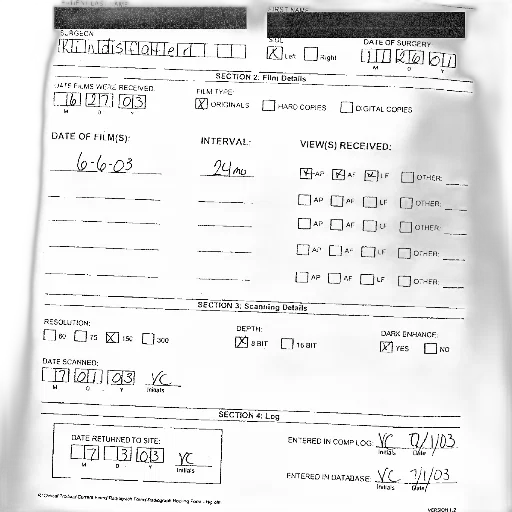 SURGEON
Left Right
DATE OF SURGERY
11 26 01
M D Y
SECTION 2: Film Details
DATE FILMS WERE RECEIVED:
6 27 03
M D Y
FILM TYPE:
X ORIGINALS HARD COPIES DIGITAL COPIES
DATE OF FILM(S): INTERVAL: VIEW(S) RECEIVED:
6-6-03 24mo AP AF LF OTHER:
AP AF LF OTHER:
AP AF LF OTHER:
AP AF LF OTHER:
AP AF LF OTHER:
SECTION 3: Scanning Details
RESOLUTION: DEPTH: DARK ENHANCE:
60 75 X 150 300 X 8 BIT 16 BIT X YES NO
DATE SCANNED:
7 01 03 VC
M D Y Initials
SECTION 4: Log
DATE RETURNED TO SITE:
7 3 03 VC
M D Y Initials
ENTERED IN COMP LOG: VC 7/1/03
Initials Date
ENTERED IN DATABASE: VC 7/1/03
Initials Date
VERSION 1.2